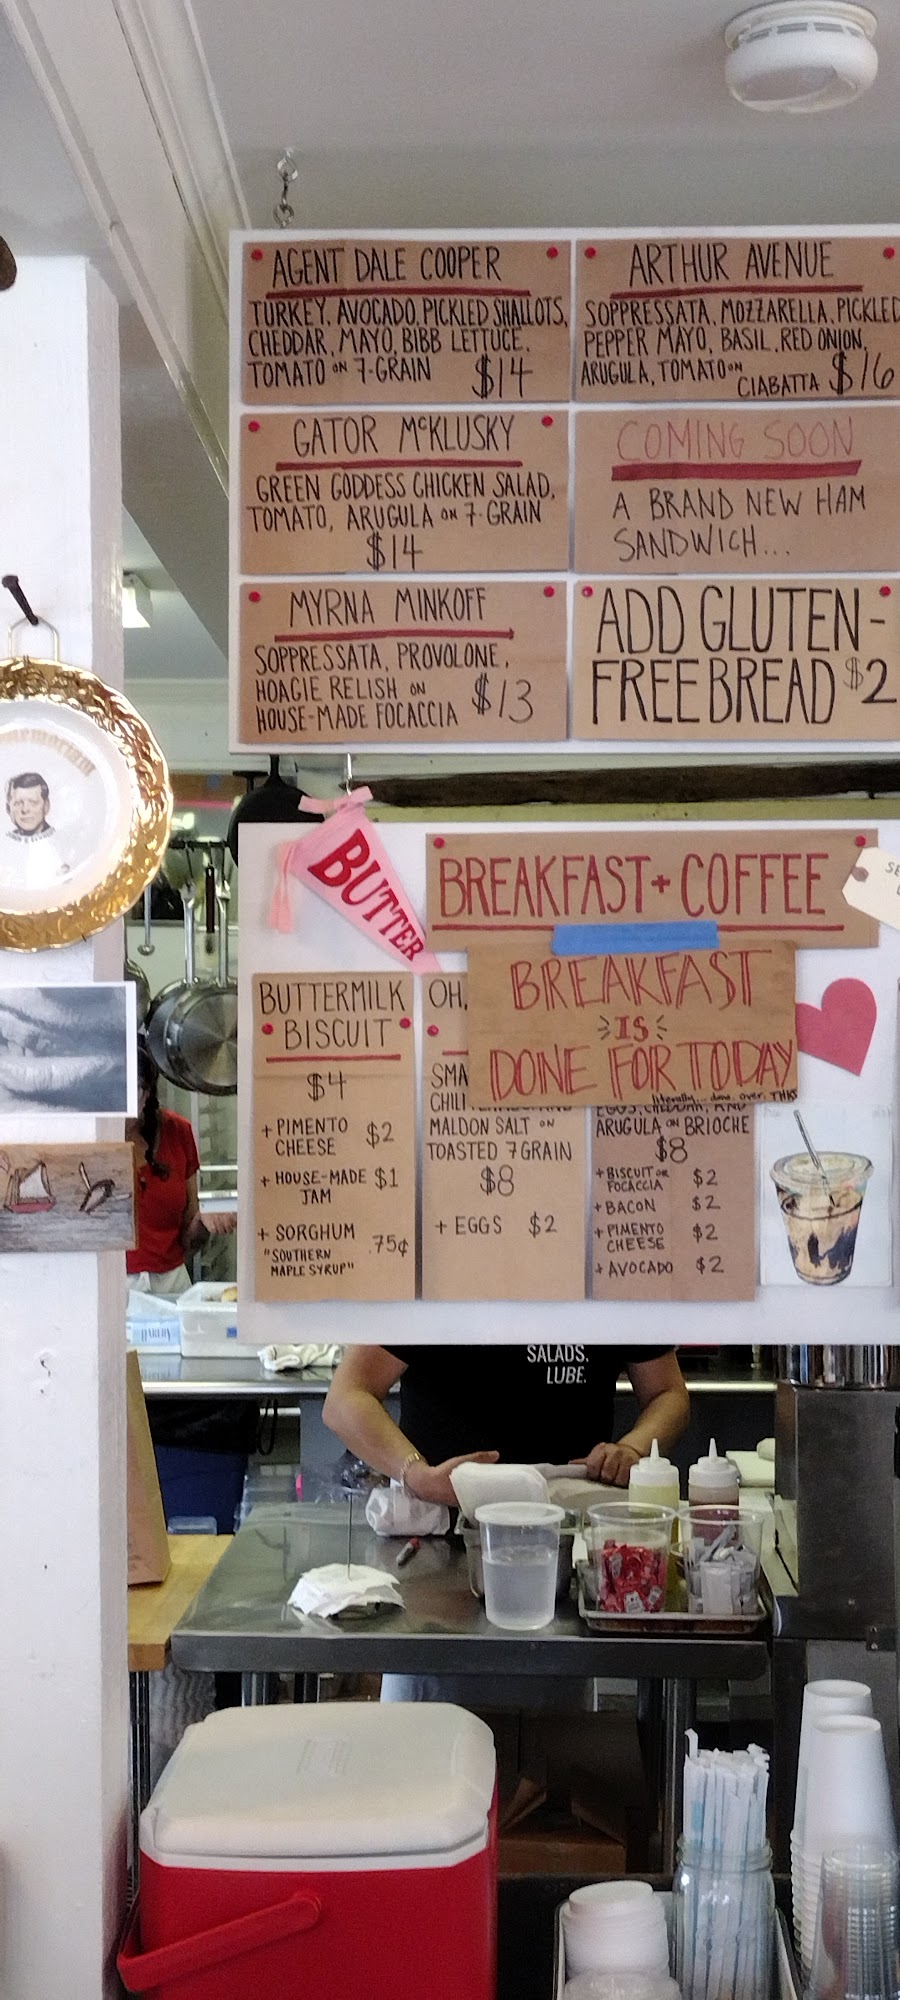 AGENT DALE COOPER
TURKEY, AVOCADO, PICKLED SHALLOTS,
CHEDDAR, MAYO, BIBB LETTUCE,
TOMATO ON 7-GRAIN $14
ARTHUR AVENUE
SOPPRESSATA, MOZZARELLA, PICKLED
PEPPER MAYO, BASIL, RED ONION,
ARUGULA, TOMATO ON
CIABATTA $16
GATOR McKLUSKY
GREEN GODDESS CHICKEN SALAD,
TOMATO, ARUGULA ON 7-GRAIN
$14
COMING SOON
A BRAND NEW HAM
SANDWICH...
MYRNA MINKOFF
SOPPRESSATA, PROVOLONE,
HOAGIE RELISH ON
HOUSE-MADE FOCACCIA $13
ADD GLUTEN-
FREE BREAD $2
BUTTER
BREAKFAST + COFFEE
BREAKFAST
IS
DONE FOR TODAY
literally... done. over. THX
BUTTERMILK
BISCUIT
$4
+ PIMENTO
CHEESE $2
+ HOUSE-MADE $1
JAM
+ SORGHUM
"SOUTHERN
MAPLE SYRUP" .75¢
OH,
SMA
CHILI
MALDON SALT ON
TOASTED 7GRAIN
$8
+ EGGS $2
EGGS, CHEDDAR, AND
ARUGULA ON BRIOCHE
$8
+ BISCUIT OR
FOCACCIA $2
+ BACON $2
+ PIMENTO
CHEESE $2
+ AVOCADO $2
SALADS.
LUBE.